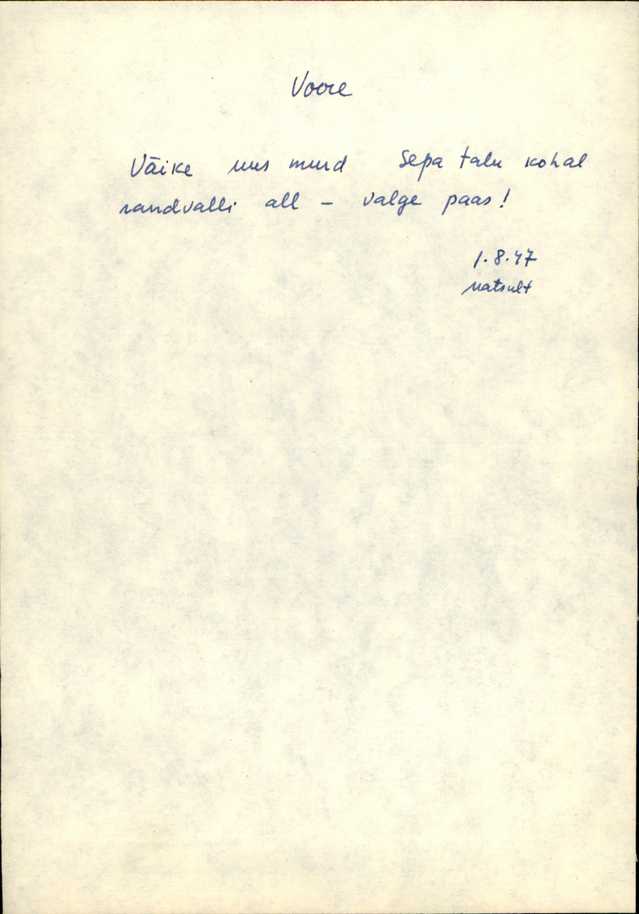 Voore
Väike uus murd Sepa talu kohal
randvalli all - valge paas!
1.8.47
Matsult